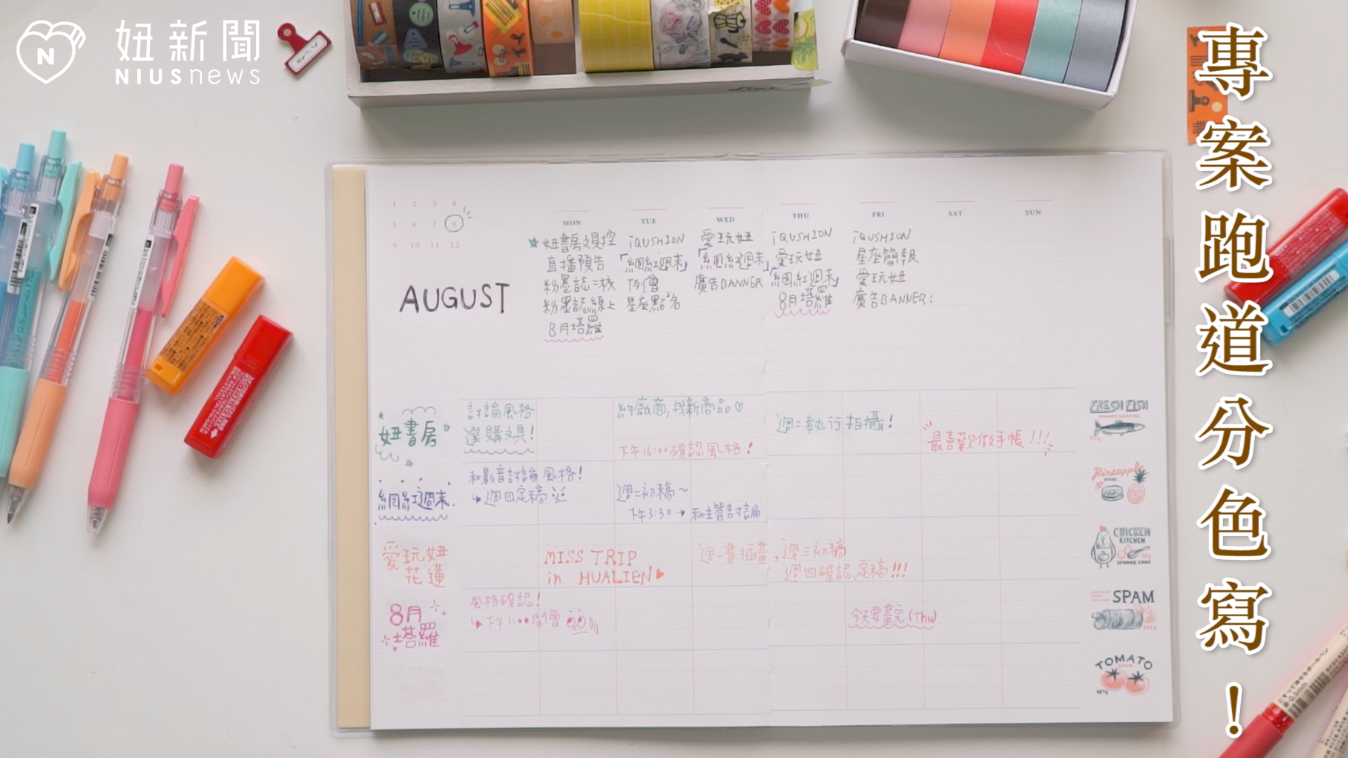 妞新聞
NIUSnews
專案跑道分色寫！
1 2 3 4
5 6 7 8
9 10 11 12
AUGUST
MON TUE WED THU FRI SAT SUN
妞書房文具控
直播預告
粉墨誌二校
粉墨誌線上
8月塔羅
iQUSHION
「網紅週末」
例會
星座點名
愛玩妞
「網紅週末」
廣告BANNER
iQUSHION
愛玩妞
「網紅週末」
8月塔羅
iQUSHION
星座簡報
愛玩妞
廣告BANNER:
妞書房
討論風格
選購文具!
約廠商,找新商品
下午16:00確認風格!
週二執行拍攝!
最喜歡做手帳!!!
網紅週末
和影音討論風格!
週四定稿
週二初稿~
下午3:30→和主管討論
愛玩妞
花蓮
MISS TRIP
in HUALIEN
週一畫插畫,週三初稿
週四確認,定稿!!!
8月
塔羅
風格確認!
下午1:00開會
今天要畫完(Thu)
FRESH FISH
Pineapple
CHICKEN
KITCHEN
SPAM
TOMATO